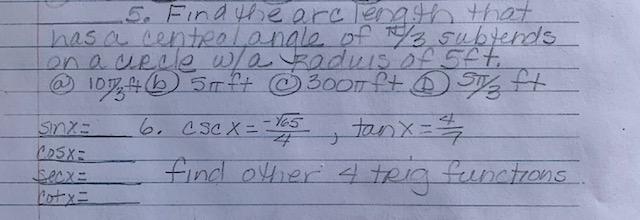 5. Find the arc length that
has a central angle of π/3 subtends
on a circle w/a Radius of 5ft.
ⓐ 10π/3 ft ⓑ 5π ft ⓒ 300π ft ⓓ 5π/3 ft
sinx= 6. csc x = -√65/4 , tan x = 4/7
cosx=
secx= find other 4 trig functions
cot x=